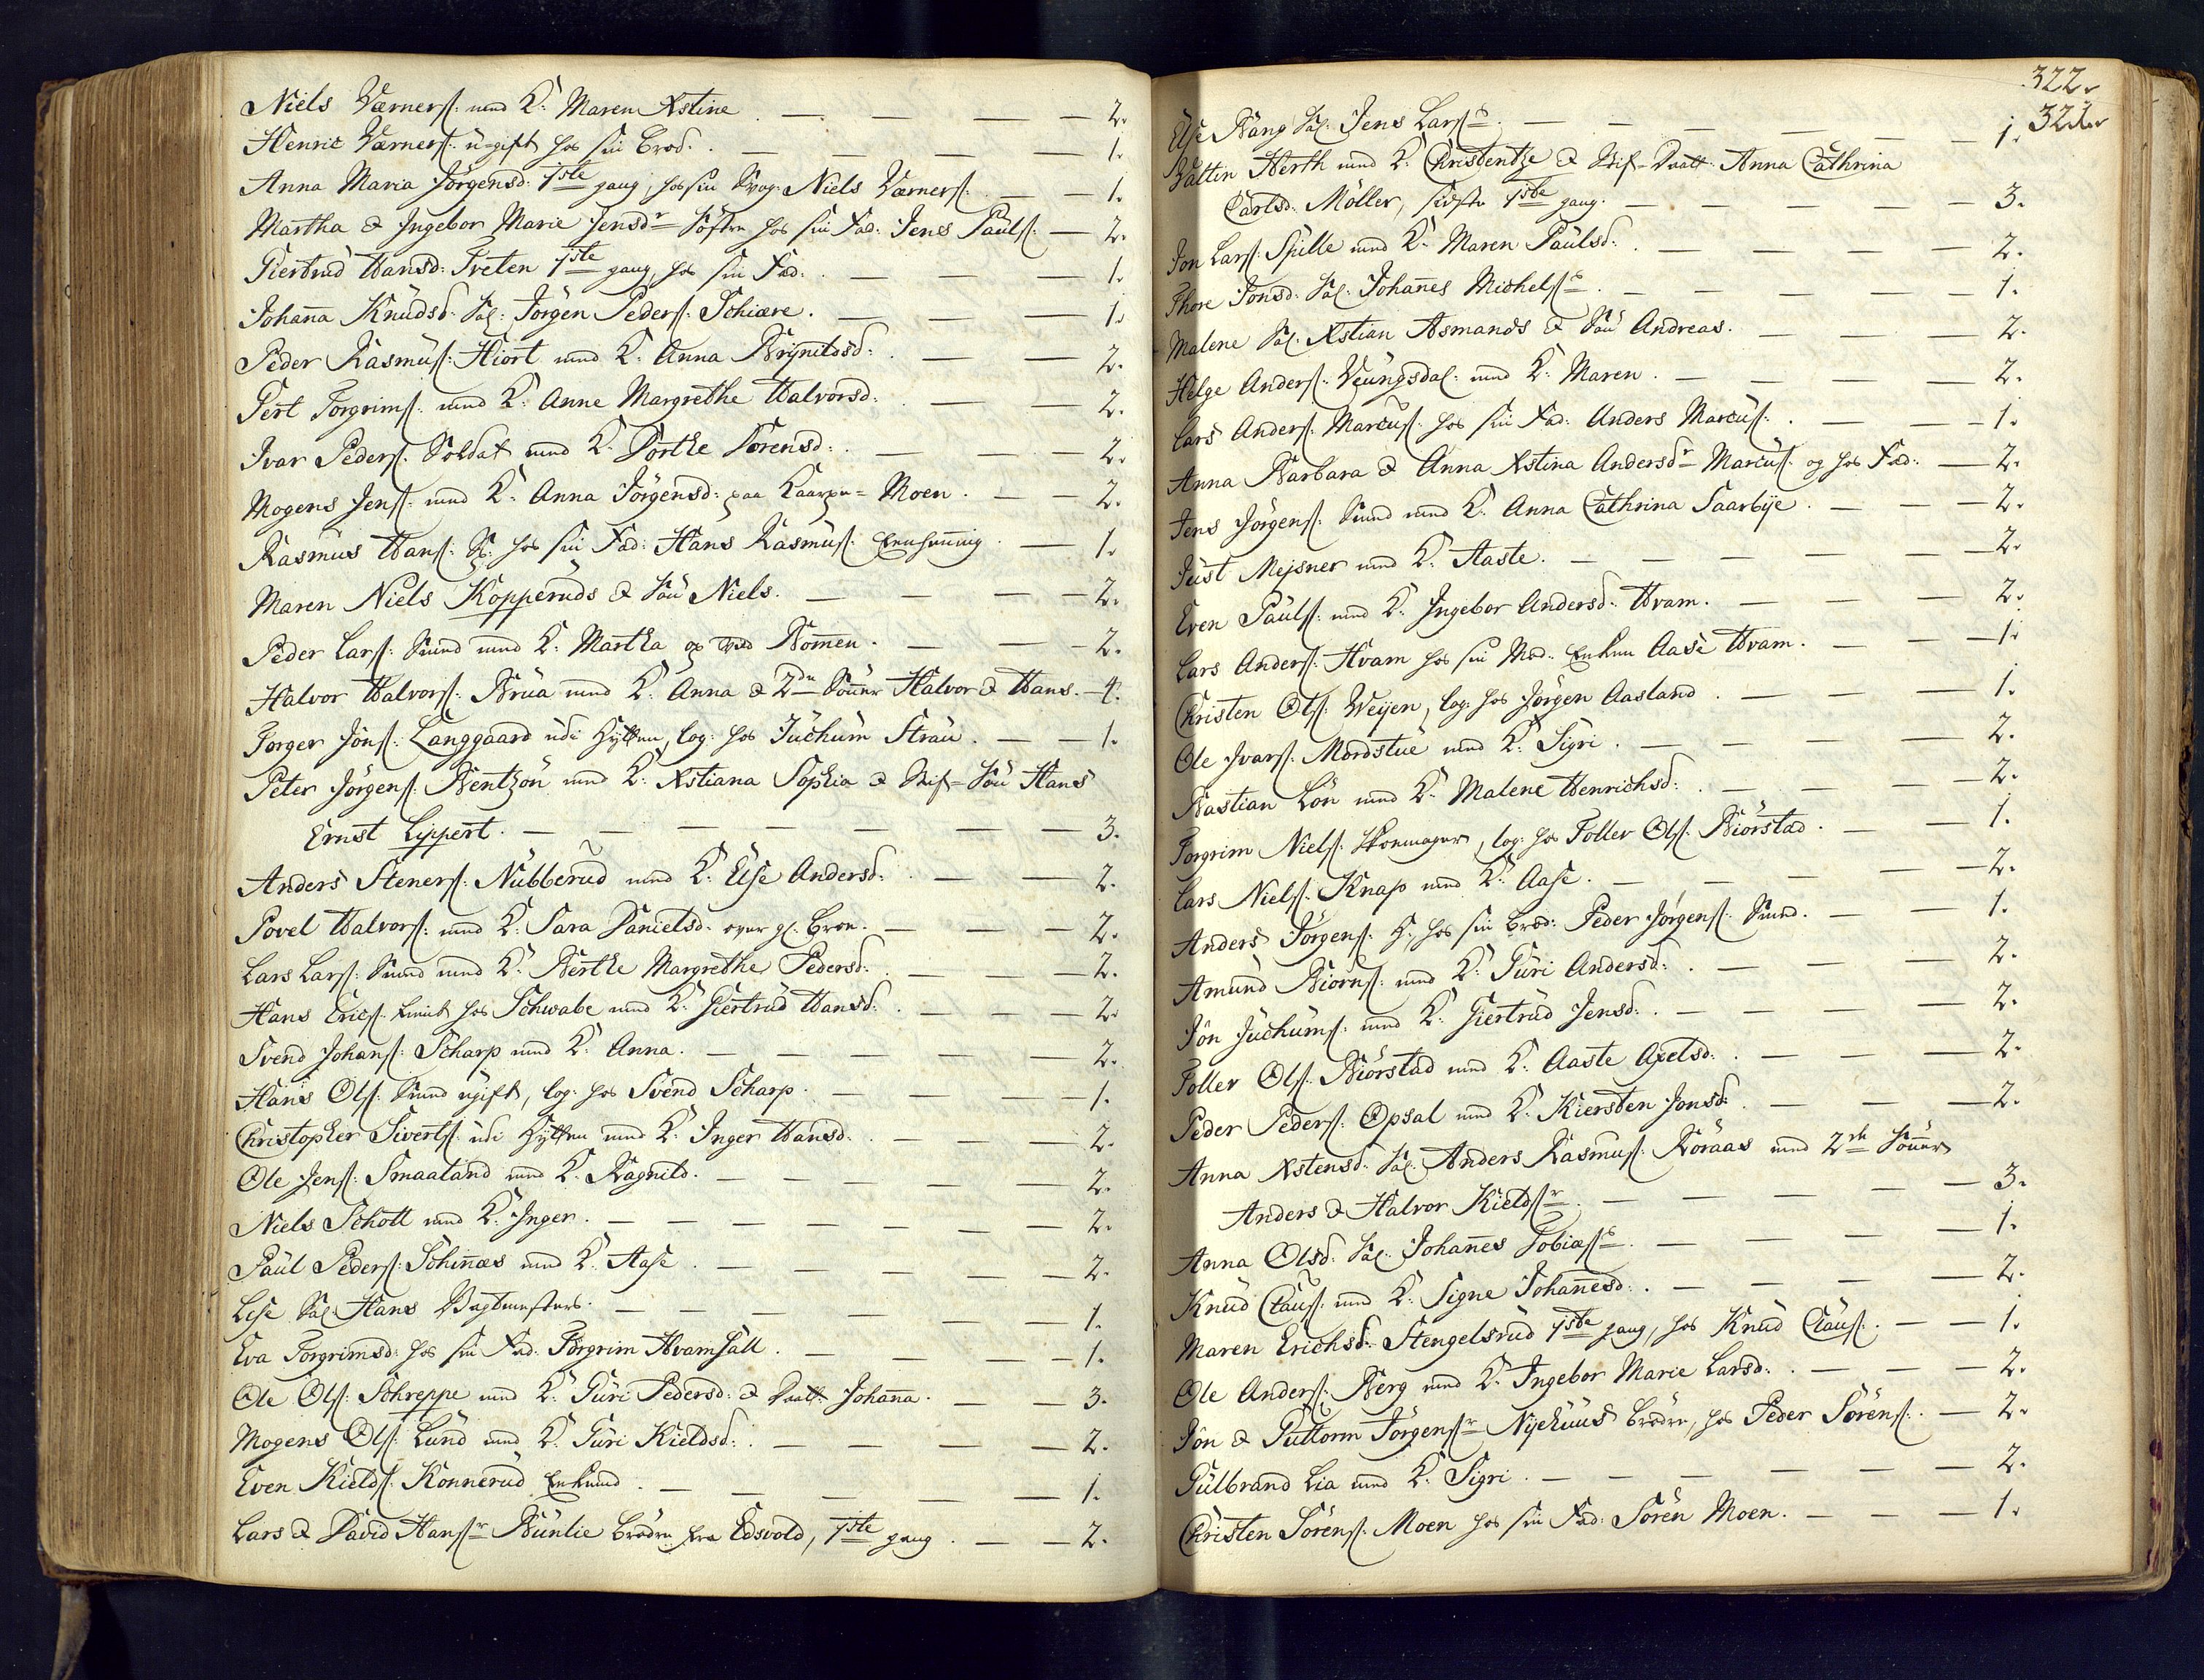 Niels Værners: med K: Maren Xstine. — — — — 2.
Henric Værners: ugift hos sin Brod:. — — — — 1.
Anna Maria Jörgensd: 1ste gang, hos sin Svog: Niels Værners:. — — 1.
Martha & Ingebor Marie Jensdr Söstre hos sin Fad: Jens Pauls: — 2.
Giertrud Hansd: Tveten 1ste gang, hos sin Fad:. — — — 1.
Johanna Knudsd: Sal: Jörgen Peders: Schiære. — — — 1.
Peder Rasmus: Hiort med K: Anna Brynildsd:. — — 2.
Gert Torgrims: med K: Anne Margrethe Halvorsd:. — — 2.
Ivar Peders: Soldat med K: Dorthe Sörensd:. — — — 2.
Mogens Jens: med K: Anna Jörgensd: paa Moen. — — 2.
Rasmus Hans: S: hos sin Fad: Hans Rasmus: — 1.
Maren Niels Kopperuds & Sön Niels. — — — — 2.
Peder Lars: Smed med K: Martha og ved Bommen. — — — 2.
Halvor Halvors: Brua med K: Anna & 2de Sönner Halvor & Hans. — 4.
Torger Jöns: Langgaard udi Hytten, log: hos Juchum Strau. — 1.
Peter Jörgens: Bentzön med K: Xstiana Sophia & Stif-Sön Hans
Ernst Lippert. — — — — — — — 3.
Anders Steners: Nubberud med K: Else Andersd:. — — — 2.
Povel Halvors: med K: Sara Danielsd: over gl: Broe. — — — 2.
Lars Lars: Smed med K: Berthe Margrethe Pedersd:. — — — 2.
Hans Erics: hos Schwabe med K: Giertrud Hansd:. — — — 2.
Svend Johans: Scharp med K: Anna. — — — — — 2.
Hans Ols: Smed ugift, log: hos Svend Scharp. — — — — 1.
Christopher Siverts: udi Hytten med K: Inger Hansd:. — — — 2.
Ole Jens: Smaaland med K: Ragnild. — — — — — 2.
Niels Schott med K: Inger. — — — — — — 2.
Paul Peders: Schinnæs med K: Aase. — — — — — 2.
Lise Sal: Hans Vagtmesters. — — — — — 1.
Eva Torgrimsd: hos sin Fad: Torgrim Hvamsall. — — — — 1.
Ole Ols: Schreppe med K: Guri Pedersd: & Datt: Johanna. — — 3.
Mogens Ols: Lund med K: Guri Kieldsd:. — — — — 2.
Even Kields: Konnerud Enkmd. — — — — — 1.
Lars & David Hansr Bunlie Brödre fra Edsvold, 1ste gang. — — 2.
322.
321.
Else Bang Sal: Jens Lars:s. — — — — — — 1.
Valtin Herth med K: Christentze & Stif-Datt: Anna Cathrina
Carlsd: Möller, sidste 1ste gang. — — — — — 3.
Jon Lars: Spille med K: Maren Paulsd:. — — — — 2.
Thore Jonsd: Sal: Johannes Michels:s. — — — — — 1.
Malene Sal: Xstian Asmands & Sön Andreas. — — — — 2.
Helge Anders: Veungsdal: med K: Maren. — — — — 2.
Lars Anders: Marcus: hos sin Fad: Anders Marcus:. — — — 1.
Anna Barbara & Anna Xstina Andersdr Marcus: og hos Fad: — 2.
Jens Jörgens: Smed med K: Anna Cathrina Saarbye. — — — 2.
Just Mejsner med K: Aaste. — — — — — — 2.
Even Pauls: med K: Ingebor Andersd: Hvam. — — — — 2.
Lars Anders: Hvam hos sin Mod: Enken Aase Hvam. — — — 1.
Christen Ols: Weyen, log: hos Jörgen Aasland. — — — — 1.
Ole Ivars: Mordstue med K: Sigri. — — — — — 2.
Bastian Lön med K: Malene Henrichsd:. — — — — 2.
Torgrim Niels: Skomager, log: hos Toller Ols: Biörstad. — — 1.
Lars Niels: Knap med K: Aase. — — — — — 2.
Anders Jörgens: S: hos sin Brod: Peder Jörgens: Smed. — — 1.
Amund Biörns: med K: Guri Andersd:. — — — — 2.
Jön Juchums: med K: Giertrud Jensd:. — — — — 2.
Toller Ols: Biörstad med K: Aaste Axelsd:. — — — — 2.
Peder Peders: Opsal med K: Kiersten Jonsd:. — — — — 2.
Anna Xstensd: Sal: Anders Rasmus: Roraas med 2de Sönner
Anders & Halvor Kieldsr. — — — — — 3.
Anna Olsd: Sal: Johannes Tobiæs:s. — — — — — 1.
Knud Claus: med K: Signe Johannesd:. — — — — 2.
Maren Erichsd: Stengelsrud 1ste gang, hos Knud Claus:. — — 1.
Ole Anders: Berg med K: Ingebor Marie Larsd:. — — — 2.
Jön & Guttorm Jörgensr Nyehuus Brödre, hos Peder Sörens:. — 2.
Gulbrand Lia med K: Sigri. — — — — — — 2.
Christen Sörens: Moen hos sin Fad: Sören Moen. — — — 1.